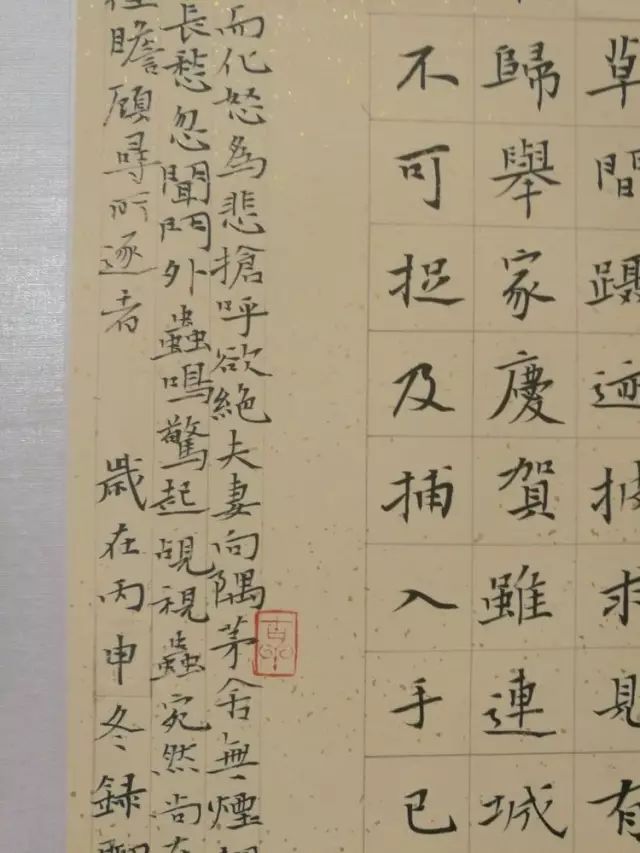 草間躡迹披求見有
歸舉家慶賀雖連城
不可捉及捕入手已
而化怒為悲搶呼欲絕夫妻向隅茅舍無煙
長愁忽聞門外蟲鳴驚起覘視蟲宛然尚在
瞻顧尋所逐者 歲在丙申冬錄聊